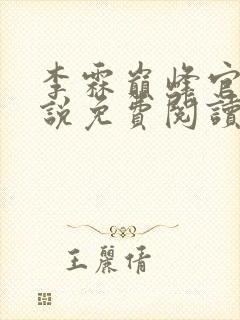 李霖巔峰官
說免費閱讀
王麗倩